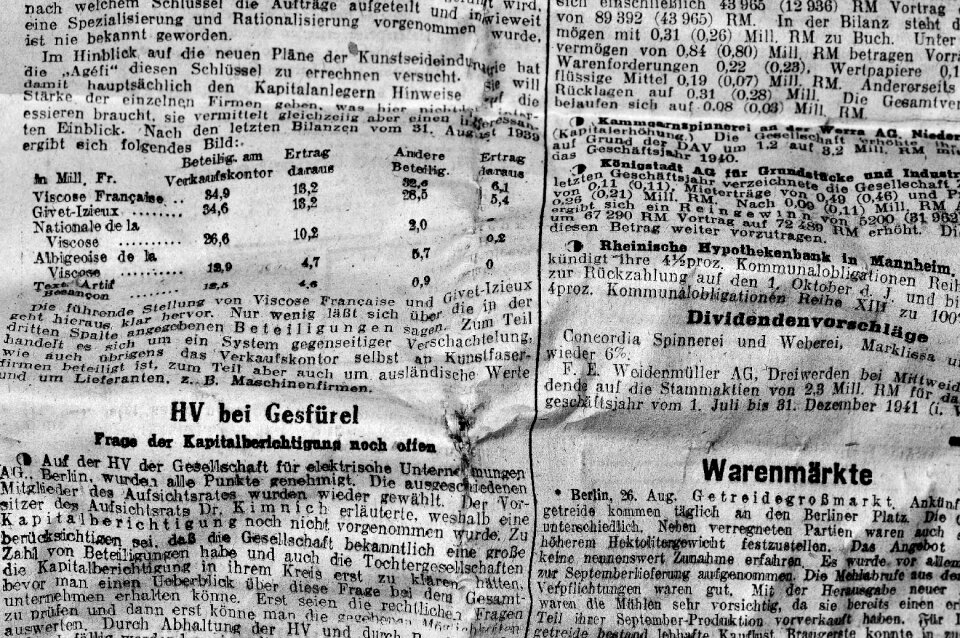 nach welchem Schlüssel die Aufträge aufgeteilt und inwieweit
eine Spezialisierung und Rationalisierung vorgenommen wurde,
ist nie bekannt geworden.
Im Hinblick auf die neuen Pläne der Kunstseideindustrie hat
die „Agéfi“ diesen Schlüssel zu errechnen versucht. Sie will
damit hauptsächlich den Kapitalanlegern Hinweise auf die
Stärke der einzelnen Firmen geben, was hier nicht
essieren braucht, sie vermittelt gleichzeitig aber einen interessan-
ten Einblick. Nach den letzten Bilanzen vom 31. August 1939
ergibt sich folgendes Bild:
Beteilig. am Ertrag Andere Ertrag
in Mill. Fr. Verkaufskontor daraus Beteilig. daraus
Viscose Française .. 34,9 13,2 32,6 6,1
Givet-Izieux ........ 34,6 13,2 28,5 5,4
Nationale de la
Viscose .......... 26,6 10,2 2,0 0,2
Albigeoise de la
Viscose .......... 12,9 4,7 5,7 0
Text. Artif
Besançon 12,5 4,6 0,9
Die führende Stellung von Viscose Française und Givet-Izieux
geht hieraus klar hervor. Nur wenig läßt sich über die in der
dritten Spalte angegebenen Beteiligungen sagen. Zum Teil
handelt es sich um ein System gegenseitiger Verschachtelung,
wie auch übrigens das Verkaufskontor selbst an Kunstfaser-
firmen beteiligt ist, zum Teil aber auch um ausländische Werte
und um Lieferanten, z. B. Maschinenfirmen.
HV bei Gesfürel
Frage der Kapitalberichtigung noch offen
Auf der HV der Gesellschaft für elektrische Unternehmungen
AG., Berlin, wurden alle Punkte genehmigt. Die ausgeschiedenen
Mitglieder des Aufsichtsrates wurden wieder gewählt. Der Vor-
sitzer des Aufsichtsrats Dr. Kimnich erläuterte, weshalb eine
Kapitalberichtigung noch nicht vorgenommen wurde. Zu
berücksichtigen sei, daß die Gesellschaft bekanntlich eine große
Zahl von Beteiligungen habe und auch die Tochtergesellschaften
die Kapitalberichtigung in ihrem Kreis erst zu klären hätten,
bevor man einen Ueberblick über diese Frage bei dem Gesamt-
unternehmen erhalten könne. Erst seien die rechtlichen Fragen
zu prüfen und dann erst könne man die gegebenen Möglichkeiten
auswerten. Durch Abhaltung der HV und durch
sich einschließlich 43 965 (12 936) RM Vortrag
von 89 392 (43 965) RM. In der Bilanz steht d
mögen mit 0,31 (0,26) Mill. RM zu Buch. Unter
vermögen von 0,84 (0,80) Mill. RM betragen Vorrä
Warenforderungen 0,22 (0,23), Wertpapiere 0,1
flüssige Mittel 0,19 (0,07) Mill. RM. Andererseits
Rücklagen auf 0,31 (0,28) Mill. Die Gesamtver
belaufen sich auf 0,08 (0,03) Mill. RM.
Kammgarnspinnerei an der Werra AG, Nieder
(Kapitalerhöhung.) Die Gesellschaft erhöhte ihr
auf Grund der DAV um 1.2 auf 3,2 Mill. RM mi
das Geschäftsjahr 1940.
Königstadt AG für Grundstücke und Industri
letzten Geschäftsjahr verzeichnete die Gesellschaft Z
von 0,11 (0,11), Mieterträge von 0,49 (0,46) und P
0,26 (0,21) Mill. RM. Nach 0,09 (0,11) Mill. RM A
ergibt sich ein Reingewinn von 5200 (31 962)
um 67 290 RM Vortrag auf 72 489 RM erhöht. Die
diesen Betrag weiter vorzutragen.
Rheinische Hypothekenbank in Mannheim.
kündigt ihre 4½proz. Kommunalobligationen Reih
zur Rückzahlung auf den 1. Oktober d. J. und bi
4proz. Kommunalobligationen Reihe XIII zu 100%
Dividendenvorschläge
Concordia Spinnerei und Weberei, Marklissa u
wieder 6%.
F. E. Weidenmüller AG, Dreiwerden bei Mittweid
dende auf die Stammaktien von 2,3 Mill. RM für da
geschäftsjahr vom 1. Juli bis 31. Dezember 1941 (i. V
Warenmärkte
* Berlin, 26. Aug. Getreidegroßmarkt. Ankünf
getreide kommen täglich an den Berliner Platz. Die
unterschiedlich. Neben verregneten Partien waren auch
höherem Hektolitergewicht festzustellen. Das Angebot
keine nennenswert Zunahme erfahren. Es wurde vor allem
zur Septemberlieferung aufgenommen. Die Mehlabrufe aus den
Verpflichtungen waren gut. Mit der Herausgabe neuer
waren die Mühlen sehr vorsichtig, da sie bereits einen er
Teil ihrer September-Produktion vorverkauft haben. Für
getreide bestand lebhafte Kauflust